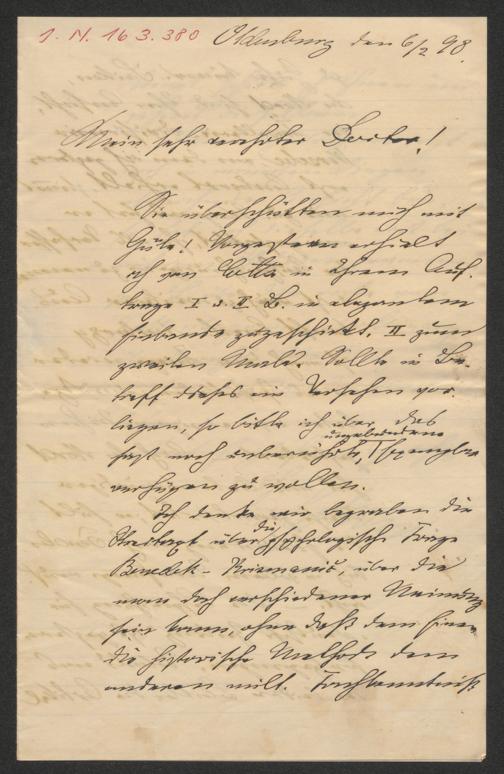 I. N. 163.380 Oldenburg den 6/2 98.
Mein sehr verehrter Doctor!
Sie überschütten mich mit
Güte! Vorgestern erhielt
ich von Cotta in Ihrem Auf-
trage I u. II B. in elegantem
Einbande zugeschickt, II zum
zweiten Male. Sollte in Be-
treff dieses ein Versehen vor-
liegen, so bitte ich über das
fast noch unberührte, ungebundene Exemplar
verfügen zu wollen.
Ich denke wir begraben die
Streitaxt über die psychologische Frage
Benedek-Krismanić, über die
man doch verschiedener Meinung
sein kann, ohne daß dem Einen
die historische Methode dem
anderen mit. Fachkenntniß